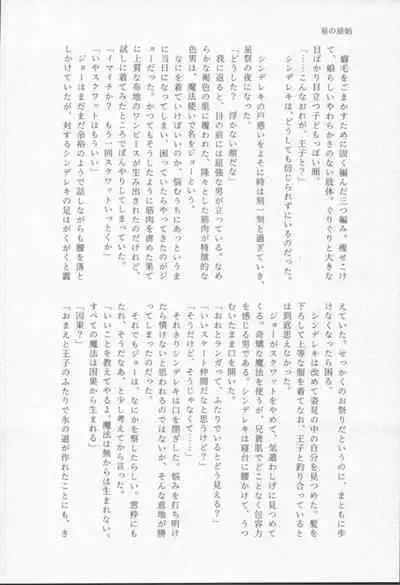 癖毛をごまかすために固く編んだ三つ編み。痩せこけ
て、娘らしいやわらかさのない肢体。ぐりぐりと大きな
目ばかり目立つ子どもっぽい顔。
「……こんなおれが、王子と？」
シンデレキは、どうしても信じられずにいるのだった。
シンデレキの戸惑いをよそに時は刻一刻と過ぎていき、
星祭の夜になった。
「どうした？　浮かない顔だな」
我に返ると、目の前には屈強な男が立っている。なめ
らかな褐色の肌に覆われた、隆々とした筋肉が特徴的な
色男は、魔法使いで名をジョーという。
なにを着ていけばいいのか、悩むうちにあっというま
に当日になってしまい、困っていたらやってきたのがジ
ョーだった。かつてもそうしたように筋肉を虐めた果て
に上質な布地のワンピースが生み出されたのだけれど、
試しに着てみたところでぼんやりしてしまっていた。
「イマイチか？　もう一回スクワットいっとくか」
「いやスクワットはもういい」
ジョーはまだまだ余裕のようで話しながらも腰を落と
しかけていたが、対するシンデレキの足はがくがくと震
えていた。せっかくのお祭りだというのに、まともに歩
けなくなったら困る。
シンデレキは改めて姿見の中の自分を見つめた。髪を
下ろして上等な服を着てなお、王子と釣り合っていると
は到底思えなかった。
ジョーがスクワットをやめて、気遣わしげに見つめて
くる。奇矯な魔法を使うが、兄貴肌でどことなく包容力
を感じる男である。シンデレキは寝台に腰かけて、うつ
むいたまま口を開いた。
「おれとランガって、ふたりでいるとどう見える？」
「いいスケート仲間だなと思うけど？」
「そうだけど、そうじゃなくて……」
それきりシンデレキは口を閉ざした。悩みを打ち明け
たら情けないと思われるのではないか、そんな意地が勝
ってしまったのだった。
それでもジョーは、なにかを察したらしい。窓枠にも
たれ、そうだなあ、と少し考えてから言った。
「いいことを教えてやるよ。魔法は無からは生まれない。
すべての魔法は因果から生まれる」
「因果？」
「おまえと王子のふたりで氷の道が作れたことにも、き